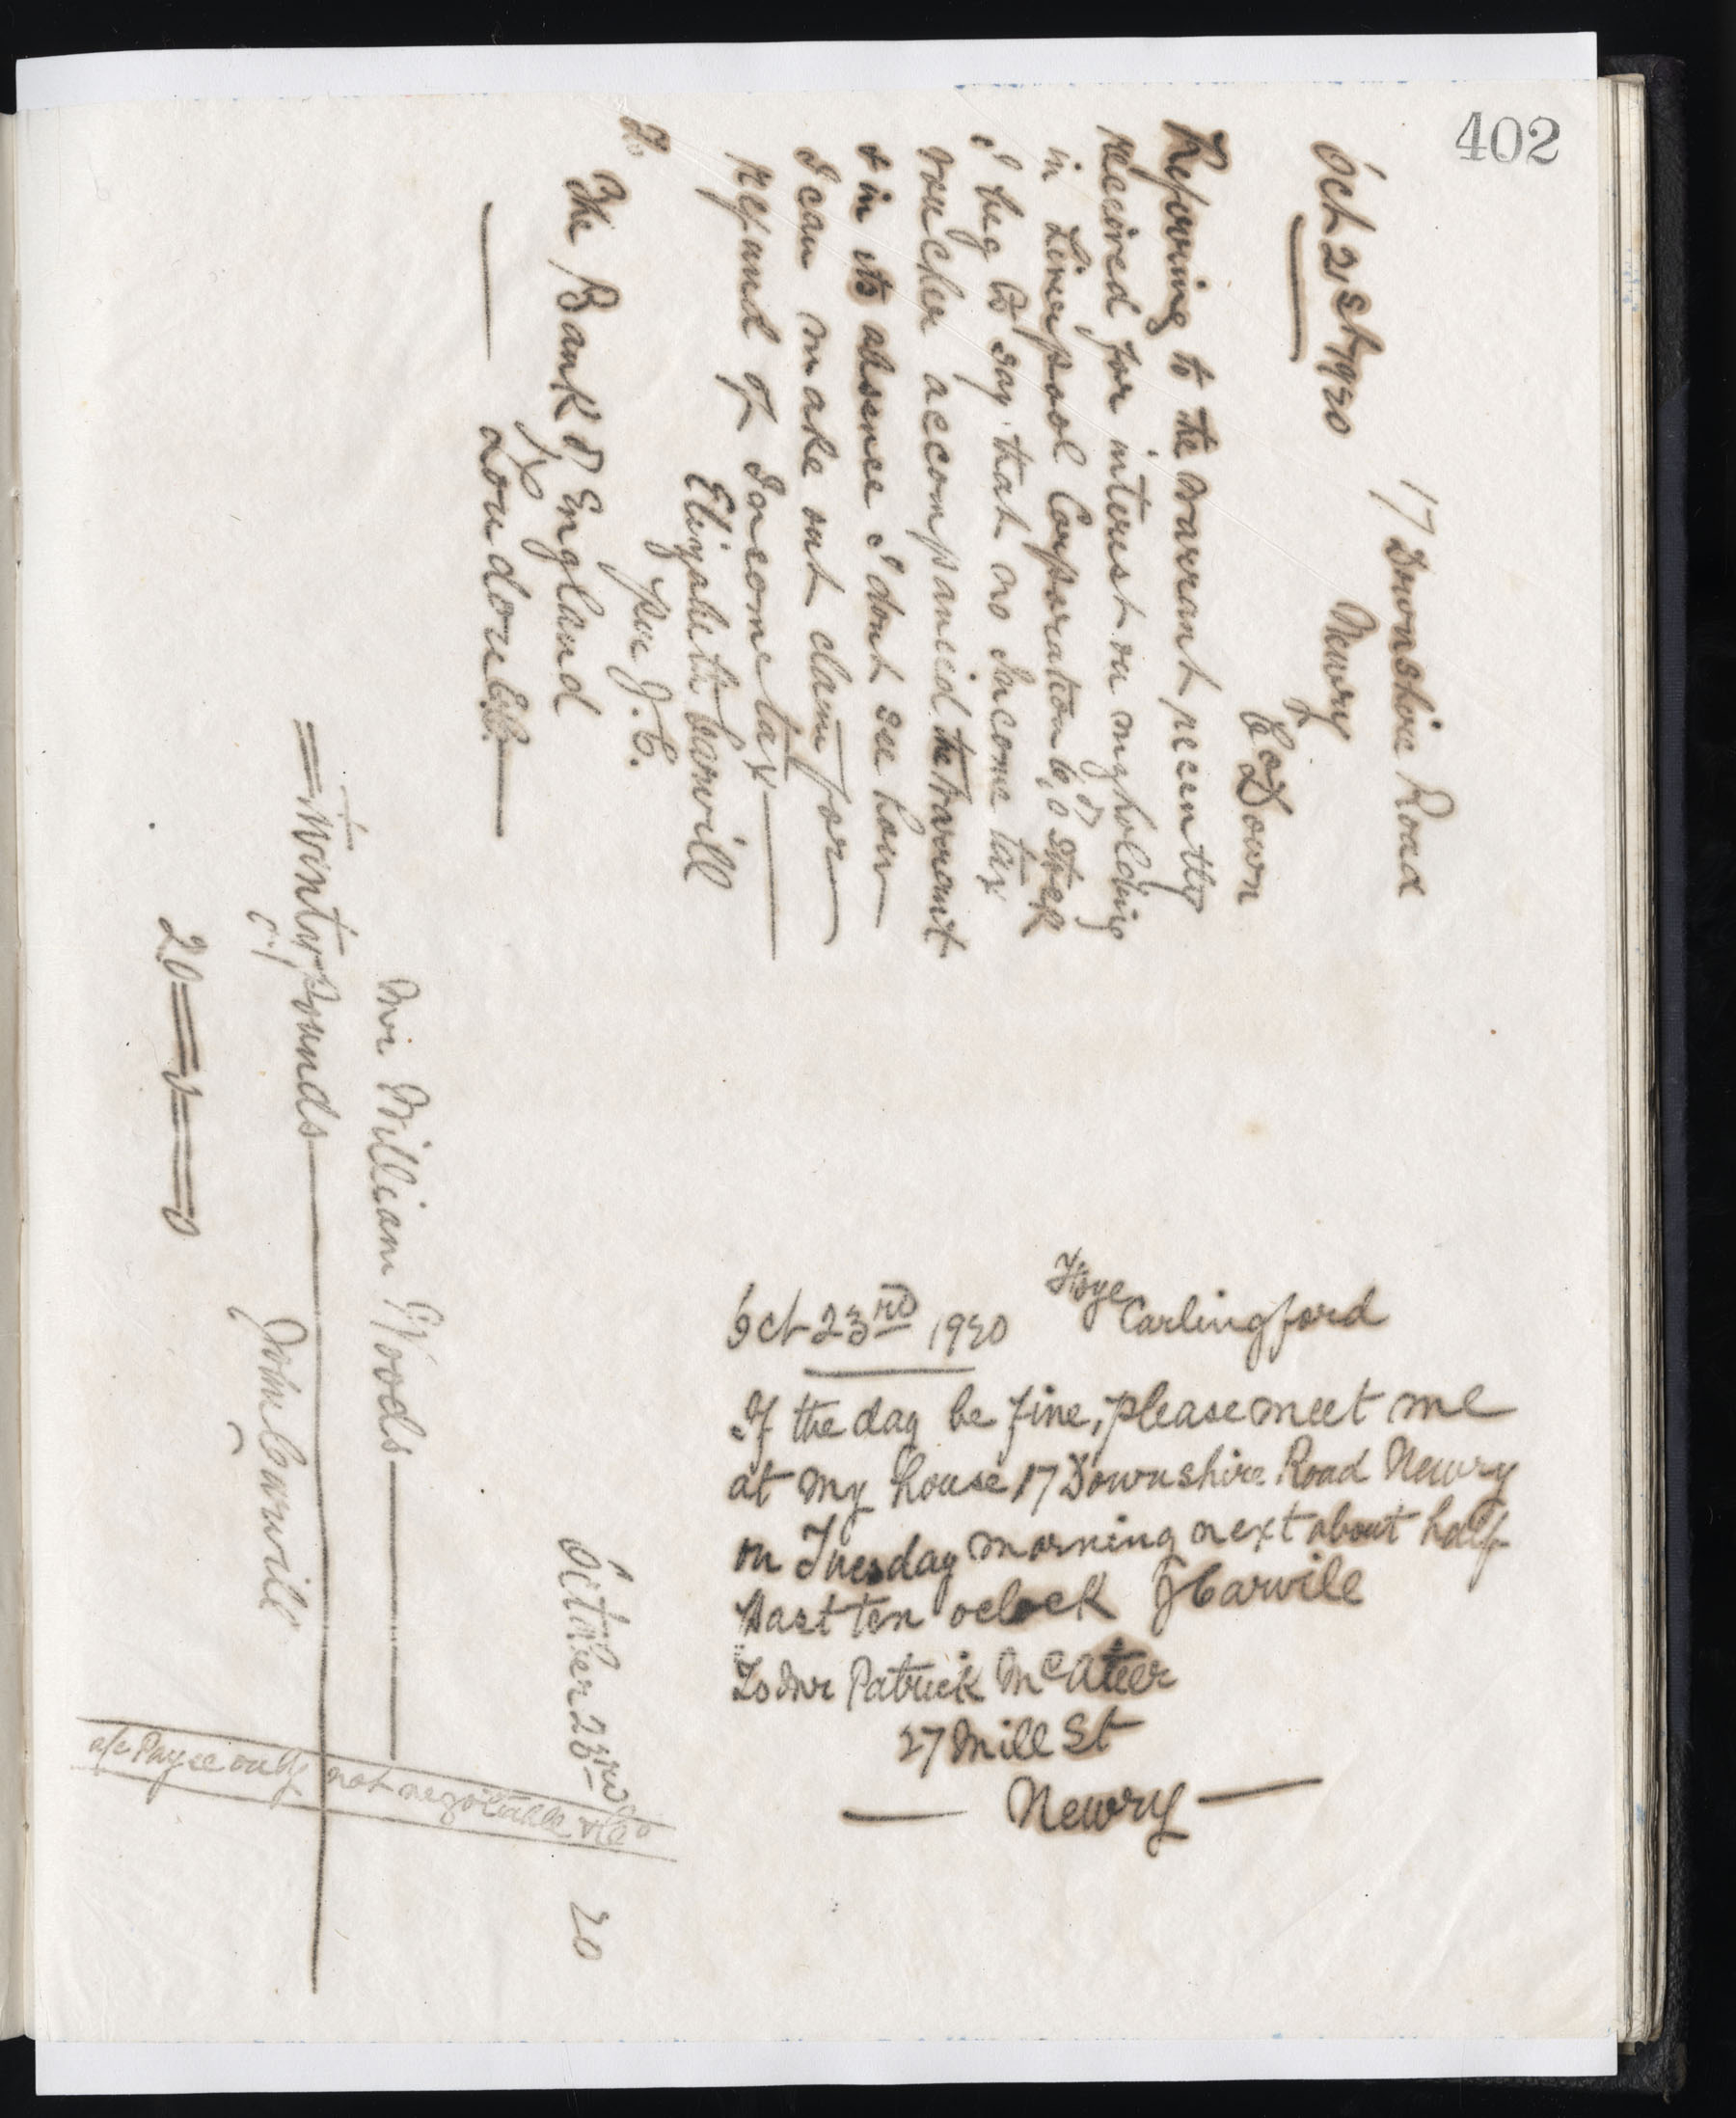 402
17 Downshire Road
Newry
Co Down
Oct 21st 1920
Referring to the warrant recently
received for interest on my holding
in Liverpool Corporation of Stock
I beg to say that no Income tax
voucher accompanied the warrant
& in its absence I dont see how
I can make out claim for
refund of Income tax
Elizabeth Carvill
per J.C.
To
The Bank of England
London EC
October 23rd 20
Mr William Woods
Twinty Pounds
John Carvill
20 = 0 = 0
a/c Payee only not negotiable & Co
Oct 23rd 1920
Carlingford
If the day be fine, please meet me
at my house 17 Downshire Road Newry
on Tuesday morning next about half
past ten oclock J Carvill
To Mr Patrick McAteer
27 Mill St
Newry